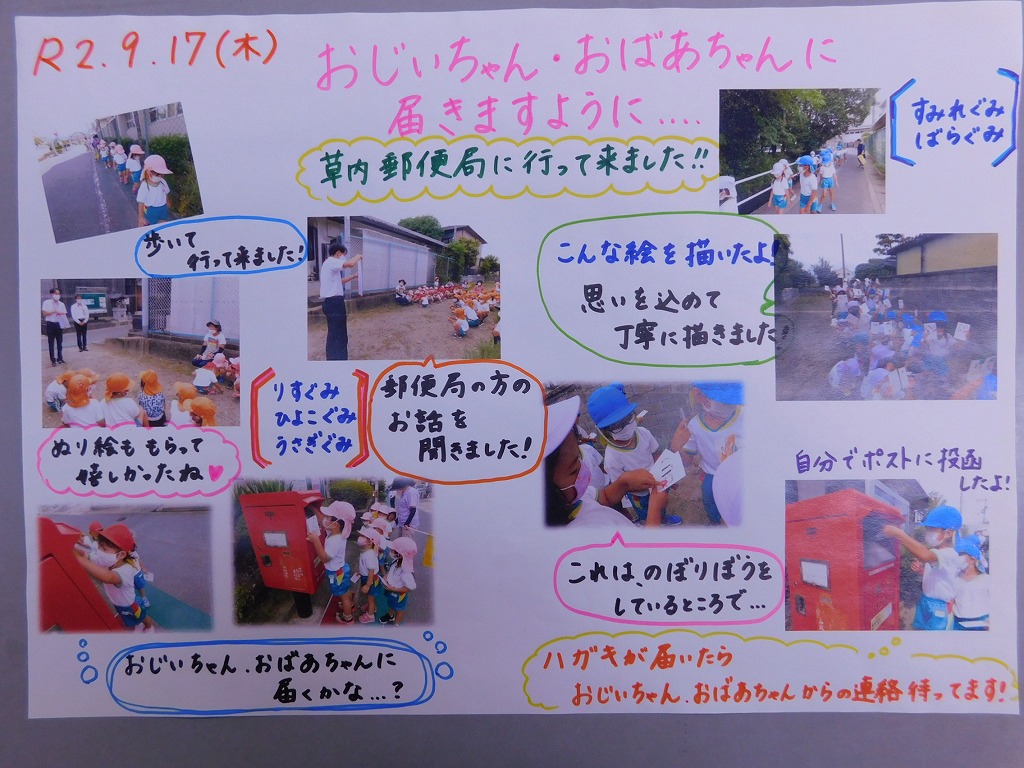 R2.9.17(木)
おじいちゃん・おばあちゃんに
届きますように.....
草内郵便局に行って来ました!!
すみれぐみ
ばらぐみ
歩いて
行って来ました!
こんな絵を描いたよ!
思いを込めて
丁寧に描きました!
りすぐみ
ひよこぐみ
うさぎぐみ
郵便局の方の
お話を
聞きました!
ぬり絵ももらって
嬉しかったね♥
自分でポストに投函
したよ!
これは、のぼりぼうを
しているところで...
おじいちゃん.おばあちゃんに
届くかな...?
ハガキが届いたら
おじいちゃん.おばあちゃんからの連絡待ってます!